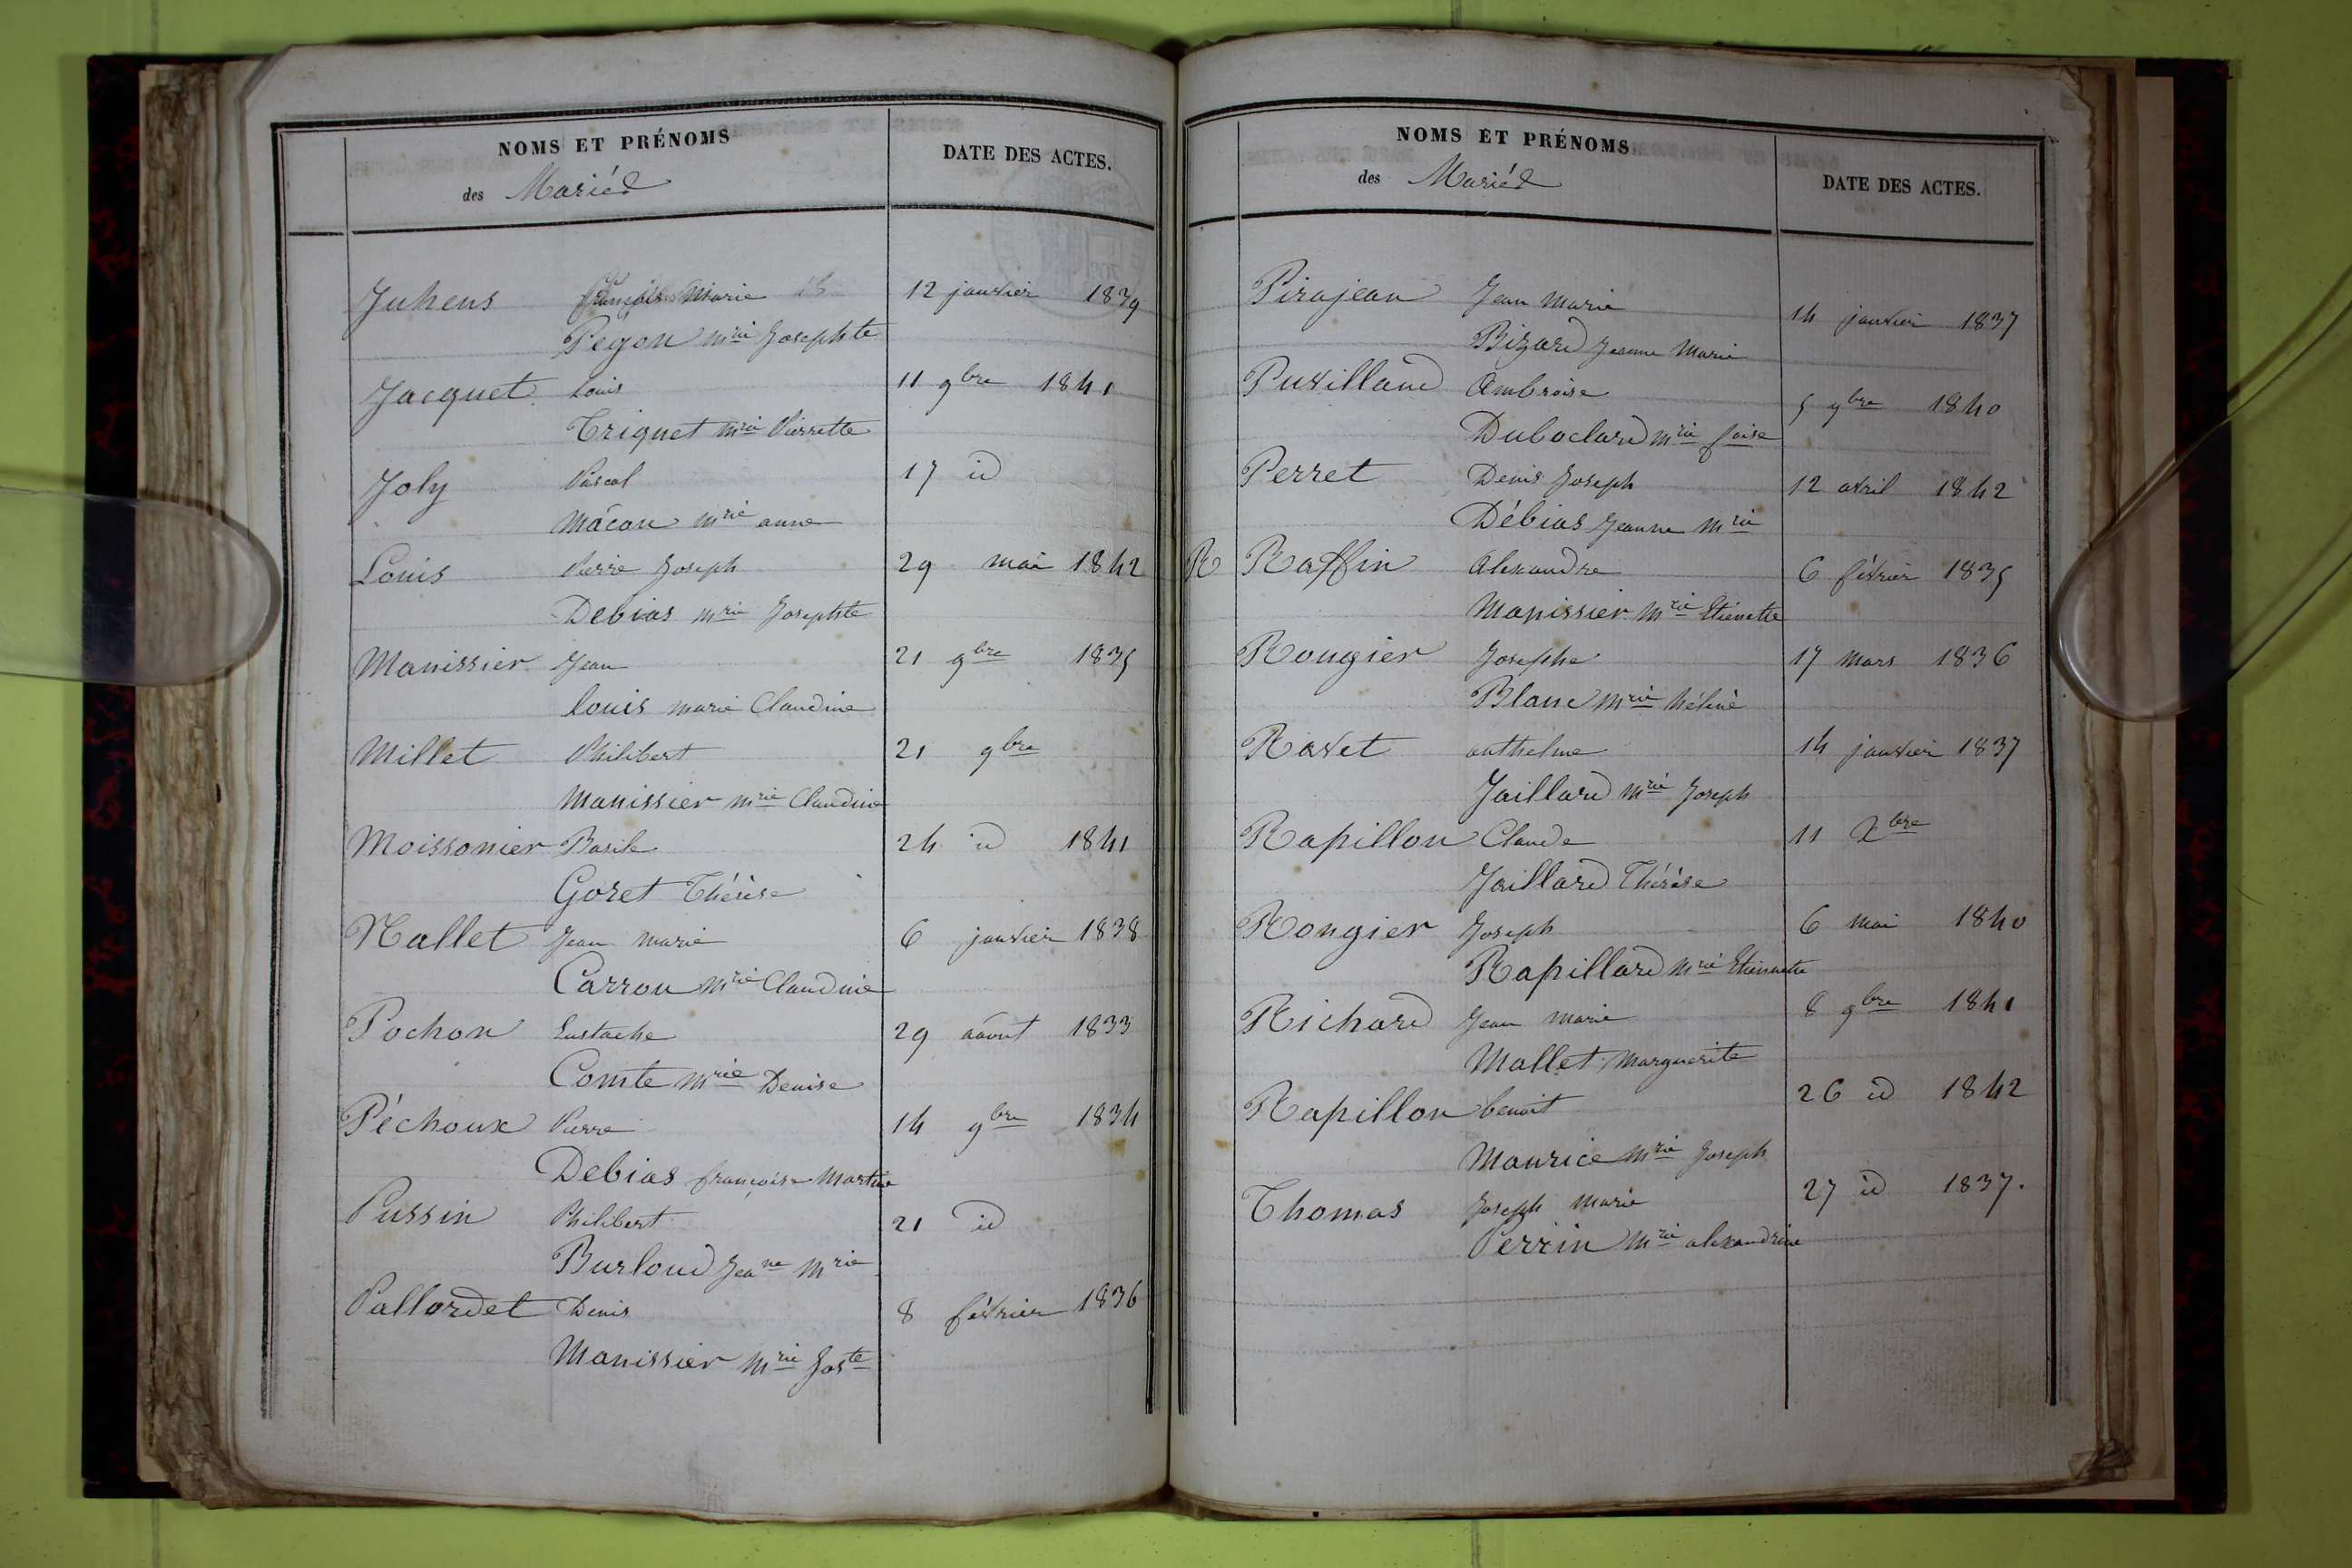 NOMS ET PRÉNOMS
des Mariés
DATE DES ACTES.
Juhens françois Marie 12 janvier 1839
Pégon mrie Josephte
Jacquet Louis 11 9bre 1841
Triquet mrie Pierrette
Joly Pascal 17 id
Mâcon mrie anne
Louis Pierre Joseph 29 mai 1842
Debias mrie Josephte
Manissier Jean 21 9bre 1835
Louis marie Claudine
Millet Philibert 21 9bre
Manissier mrie Claudine
Moissonier Basile 24 id 1841
Goret Thérèse
Nallet Jean marie 6 janvier 1838
Carron mrie Claudine
Pochon Eustache 29 aâout 1833
Comte mrie Denise
Péchoux Pierre 14 9bre 1834
Debias françoise Martine
Pussin Philibert 21 id
Burloud Jeane mrie
Pallordet Denis 8 février 1836
Manissier mrie Joste
NOMS ET PRÉNOMS
des Mariés
DATE DES ACTES.
Pirajean Jean Marie 14 janvier 1837
Bizard Jeanne Marie
Puvilland Ambroise 5 9bre 1840
Duboclard mrie foise
Perret Denis Joseph 12 avril 1842
Débias Jeanne mrie
R Raffin Alexandre 6 février 1835
Manissier mrie Etienette
Rougier Josephe 17 mars 1836
Blanc mrie hélène
Ravet anthelme 14 janvier 1837
Jaillard mrie Joseph
Rapillon Claude 11 Xbre
Jaillard Thérèse
Rougier Joseph 6 mai 1840
Rapillard mrie Etiennette
Richard Jean marie 8 9bre 1841
Mallet Marguerite
Rapillon benoit 26 id 1842
Maurice mrie Joseph
Thomas Joseph Marie 27 id 1837.
Perrin mrie alexandrine